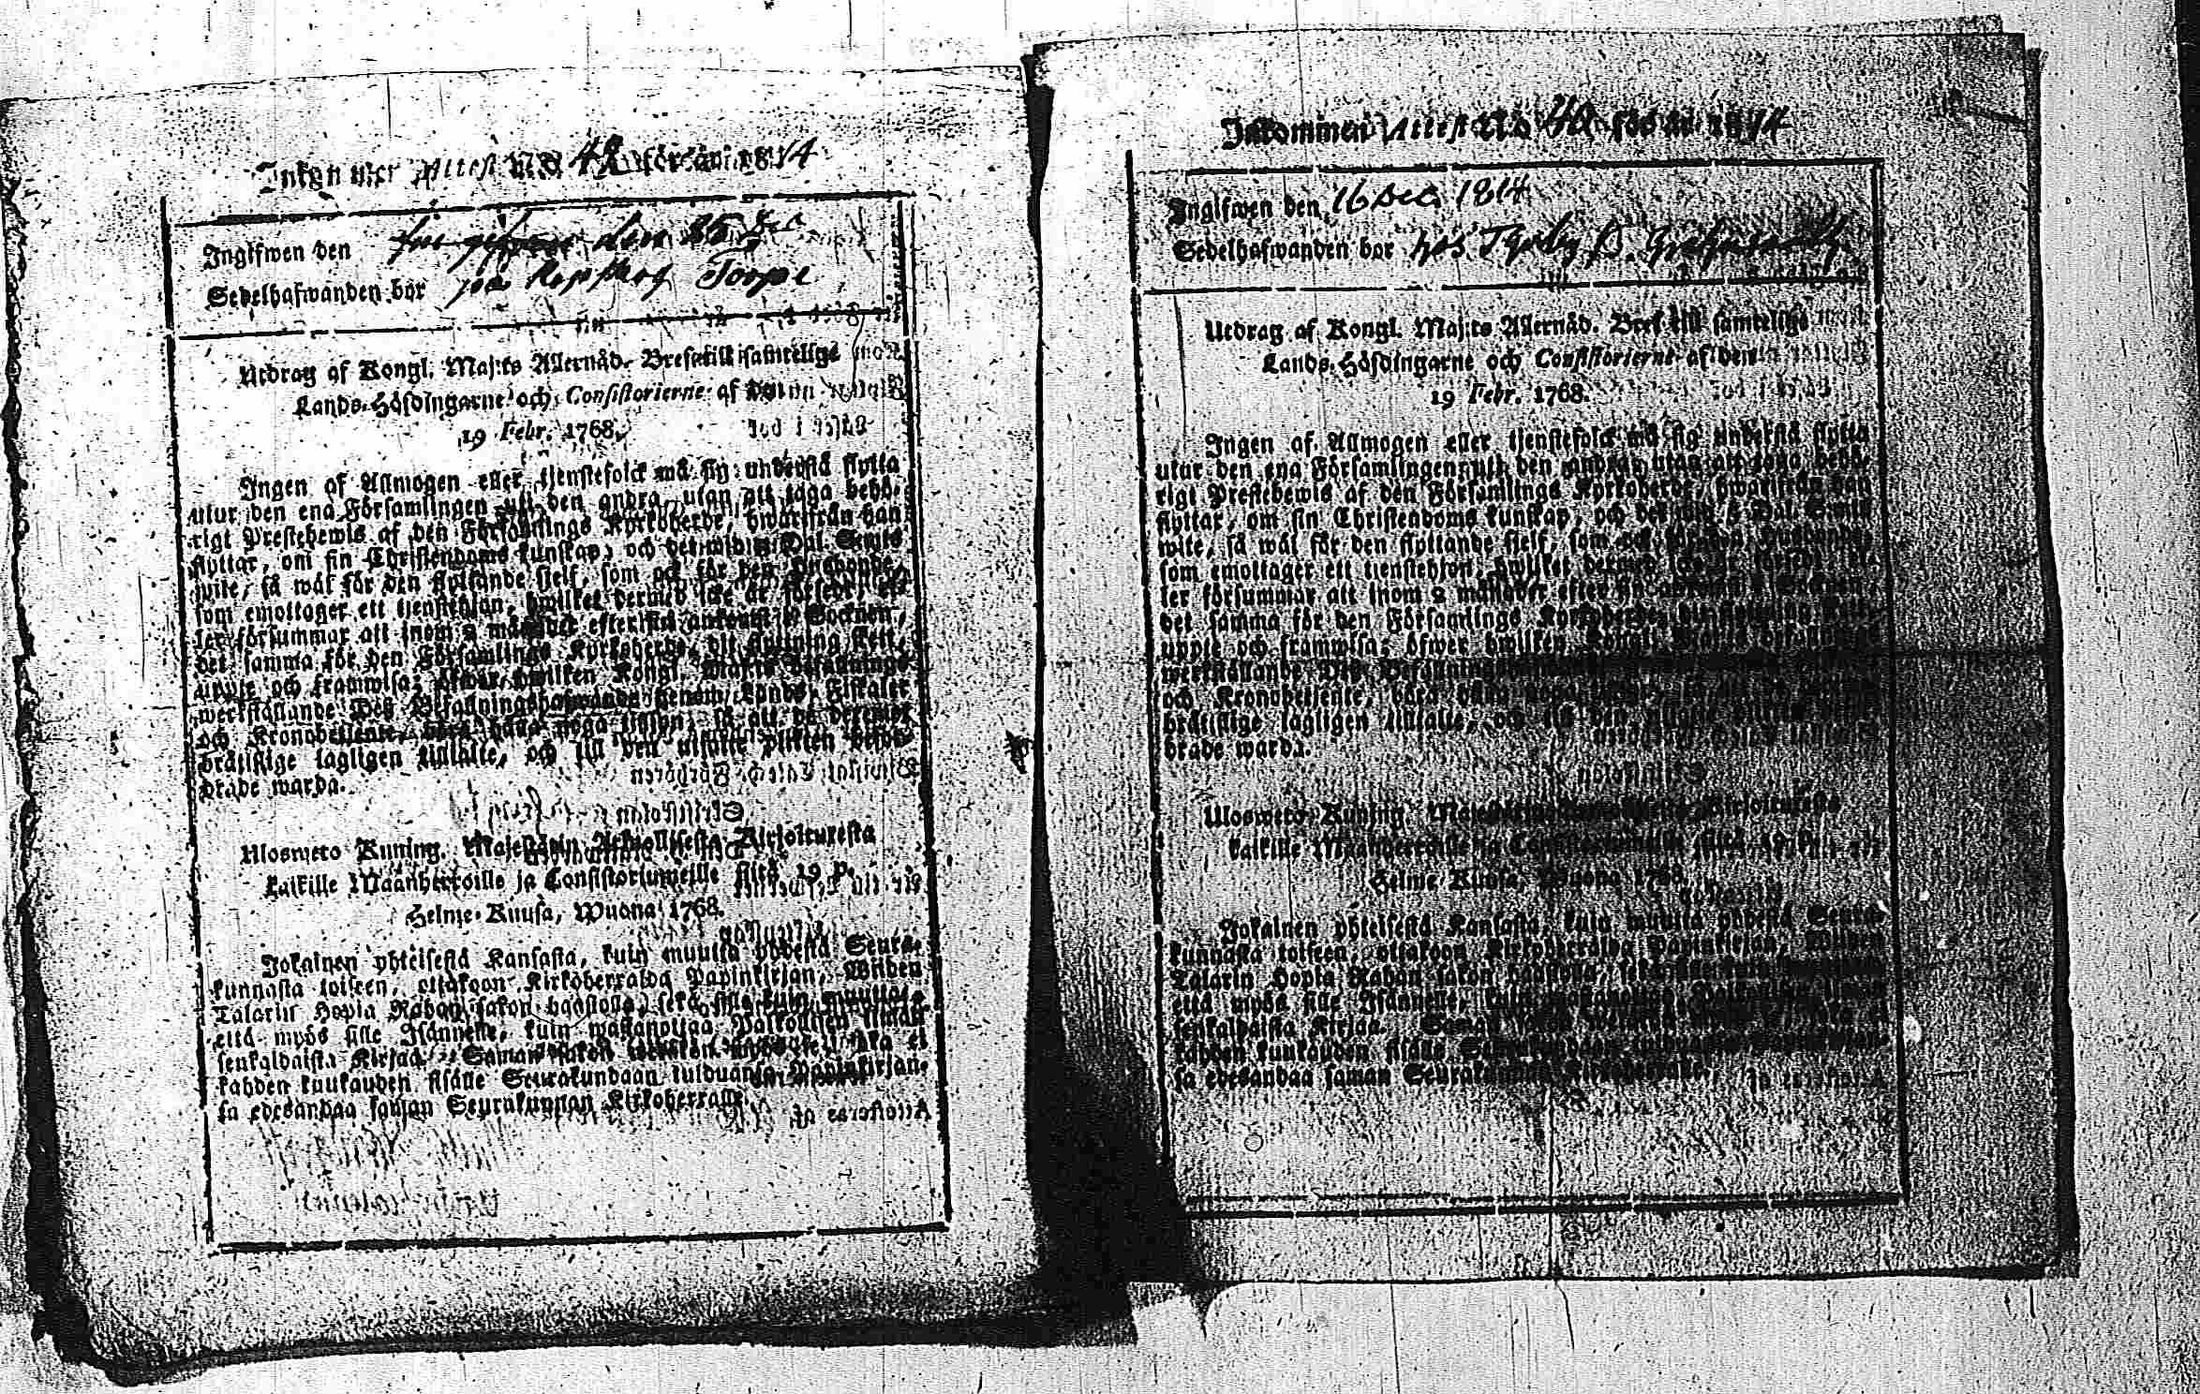 Attest N:o 42 för år 1814
Ingifwen den den 25 Dec
Sedelhafwanden bor Torpe
Utdrag af Kongl. Maj:ts Allernåd. Bref till samtelige
Lands-Höfdingarne och Consistorierne af den
19 Febr. 1768.
Ingen af Allmogen eller tjenstefolck må sig understå flytta
utur den ena Församlingen uti den andra, utan att taga behö-
rigt Prestebewis af den Församlings Kyrkoherde, hwarifrån han
flyttar, om sin Christendoms kunskap, och det wid 5 Dal. S:mts
wite, så wäl för den flyttande sielf, som ock för den Husbonde,
som emottager ett tjenstehjon, hwilket dermed icke är försedt, el-
ler försummar att inom 2 månader efter sin ankomst i Socknen,
det samma för den Församlings Kyrkoherde, dit flyttning skett,
uppte och framwisa; öfwer hwilken Kongl. Maj:ts Befallnings
werkställande Deß Befallningshafwande genom Lands-Fiskaler
och Kronobetjente, böra hålla noga tillsyn, så att de deremot
brätslige lagligen tilltalte, och till den utsatte plikten befor-
drade warda.
Uloswetο Kuning. Majestätin Armollisesta Kirjoituxesta
kaikille Maanherroille ja Consistoriumeille siitä 19 p.
Helme-Kuusa, Wuona 1768.
Jokainen yhteisestä Kansasta, kuin muutta yhdestä Seura-
kunnasta toiseen, ottakoon Kirkoherralda Papinkirjan, Wiiden
Talarin Hopia Rahan sakon haastolla, sekä sille kuin muuttaa,
että myös sille Isännelle, kuin wastanottaa Palkollisen ilman
senkaldaista Kirjaa. Saman sakon wetäkön myös se, joka ei
kahden kuukauden sisälle Seurakundaan tulduansa Papinkirjan-
sa edesandaa saman Seurakunnan Kirkoherralle.
Inkommen Attest N:o 40 för år 1814
Ingifwen den 16 Dec. 1814
Sedelhafwanden bor hos
Utdrag af Kongl. Maj:ts Allernåd. Bref till samtelige
Lands-Höfdingarne och Consistorierne af den
19 Febr. 1768.
Ingen af Allmogen eller tjenstefolck må sig understå flytta
utur den ena Församlingen uti den andra, utan att taga behö-
rigt Prestebewis af den Församlings Kyrkoherde, hwarifrån han
flyttar, om sin Christendoms kunskap, och det wid 5 Dal. S:mts
wite, så wäl för den flyttande sielf, som ock för den Husbonde,
som emottager ett tjenstehjon, hwilket dermed icke är försedt, el-
ler försummar att inom 2 månader efter sin ankomst i Socknen,
det samma för den Församlings Kyrkoherde, dit flyttning skett,
uppte och framwisa; öfwer hwilken Kongl. Maj:ts Befallnings
werkställande Deß Befallningshafwande
och Kronobetjente, böra hålla noga tillsyn, så att de deremot
brätslige lagligen tilltalte, och till den utsatte plikten befor-
drade warda.
Uloswetο Kuning. Majestätin Armollisesta Kirjoituxesta
kaikille Maanherroille ja Consistoriumeille siitä 19 p.
Helme-Kuusa, Wuona 1768.
Jokainen yhteisestä Kansasta, kuin muutta yhdestä Seura-
kunnasta toiseen, ottakoon Kirkoherralda Papinkirjan, Wiiden
Talarin Hopia Rahan sakon haastolla, sekä sille kuin muuttaa,
että myös sille Isännelle, kuin wastanottaa Palkollisen ilman
senkaldaista Kirjaa. Saman sakon wetäkön myös se, joka ei
kahden kuukauden sisälle Seurakundaan tulduansa Papinkirjan-
sa edesandaa saman Seurakunnan Kirkoherralle.